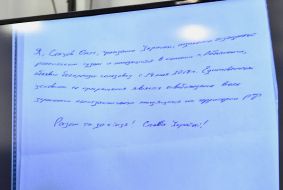 Я, Сенцов Олег, гражданин Украины, незаконно осужденный
российским судом и находящийся в колонии г. Лабытнанги,
бессрочную голодовку с 14 мая 2018 г. Единственным
условием ее прекращения является освобождение всех
украинских политзаключенных находящихся на территории РФ
Разом та до кінця! Слава Україні!